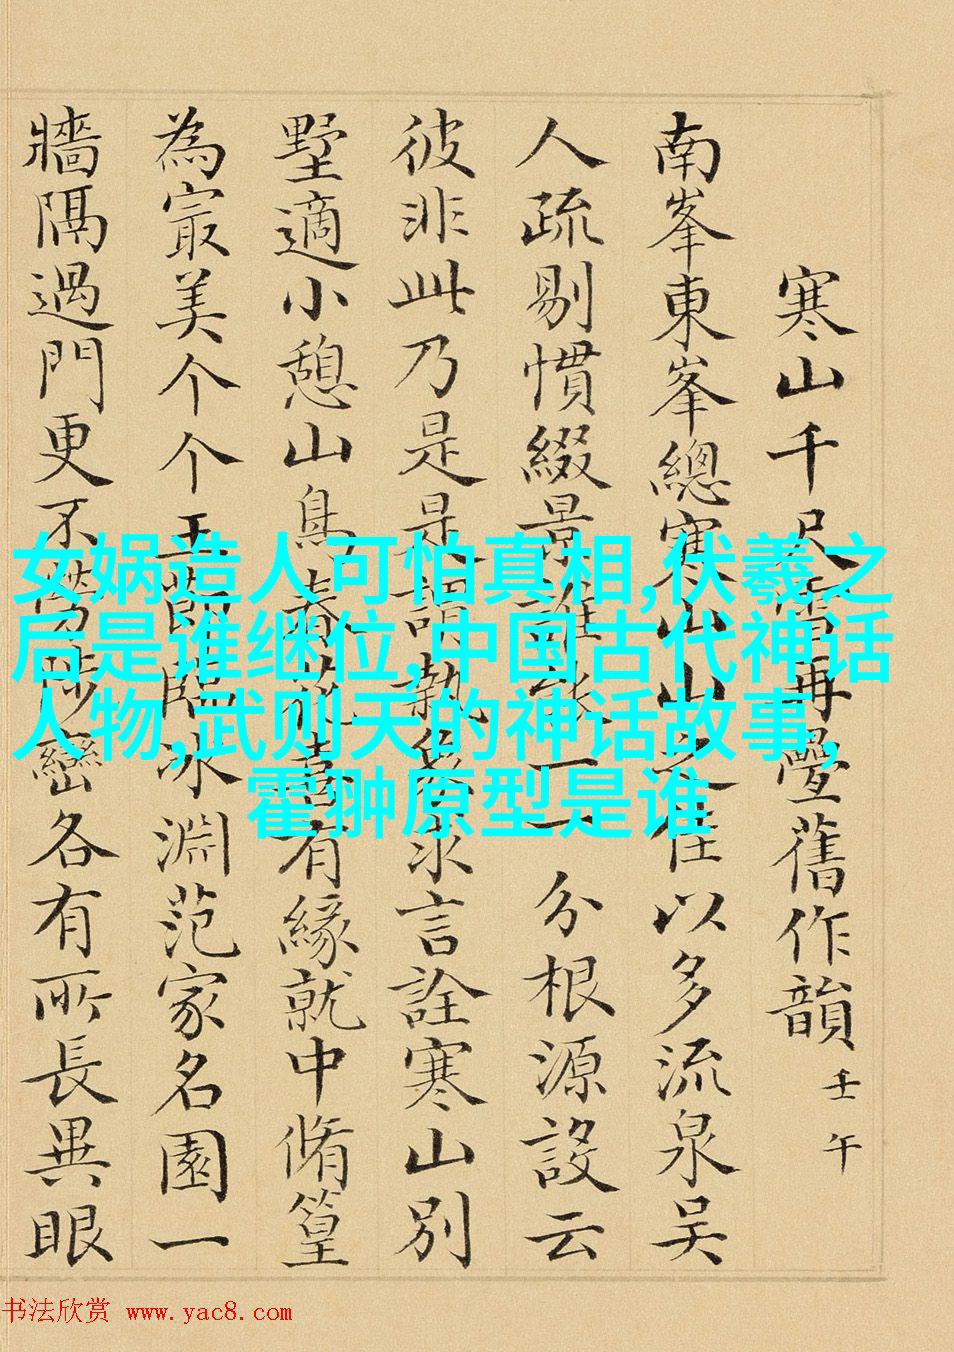 寒山千尺雪再疊舊作韻 壬午
南峯東峯總寒山山之佳以多流泉吴
人疏剔慣綴景誰能一一分根源設云
彼非此乃是是謂執象求言詮寒山別
墅適小憩山鳥春花喜有緣就中脩篁
為最美个个玉節臨冰淵范家名園一
牆隔過門更不勞陟巒各有所長異眼
女娲造人可怕真相,伏羲之
后是谁继位,中国古代神话
人物,武则天的神话故事,
霍翀原型是谁
书法欣赏 www.yac8.com